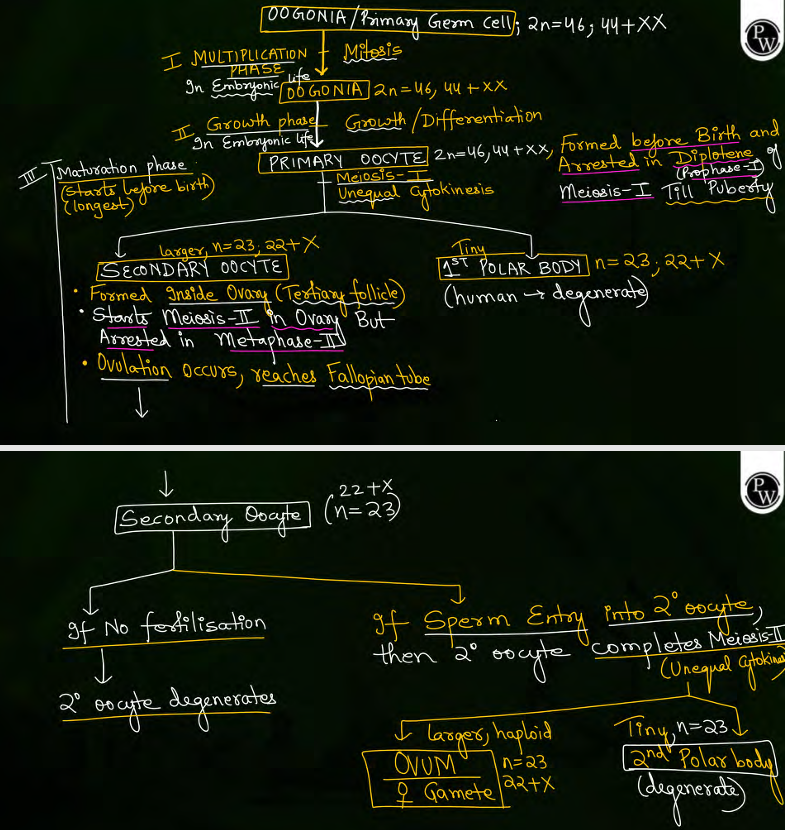 OOGONIA/Primary Germ Cell; 2n=46; 44+XX
PW
I MULTIPLICATION PHASE
Mitosis
In Embryonic life
OOGONIA 2n=46, 44+XX
II Growth phase
Growth/Differentiation
In Embryonic life
PRIMARY OOCYTE 2n=46, 44+XX, Formed before Birth and
Arrested in Diplotene of
(Prophase-I)
Meiosis-I Till Puberty
III Maturation phase
(Starts before birth)
(longest)
Meiosis-I
Unequal Cytokinesis
larger, n=23; 22+X
SECONDARY OOCYTE
Tiny
1ST POLAR BODY n=23; 22+X
(human → degenerate)
• Formed Inside Ovary (Tertiary follicle)
• Starts Meiosis-II in Ovary But
Arrested in Metaphase-II
• Ovulation occurs, reaches Fallopian tube
PW
Secondary Oocyte
22+X
(n=23)
If No fertilisation
2° oocyte degenerates
If Sperm Entry into 2° oocyte,
then 2° oocyte completes Meiosis-II
(Unequal Cytokines
larger, haploid
OVUM
♀ Gamete
n=23
22+X
Tiny, n=23
2nd Polar body
(degenerate)